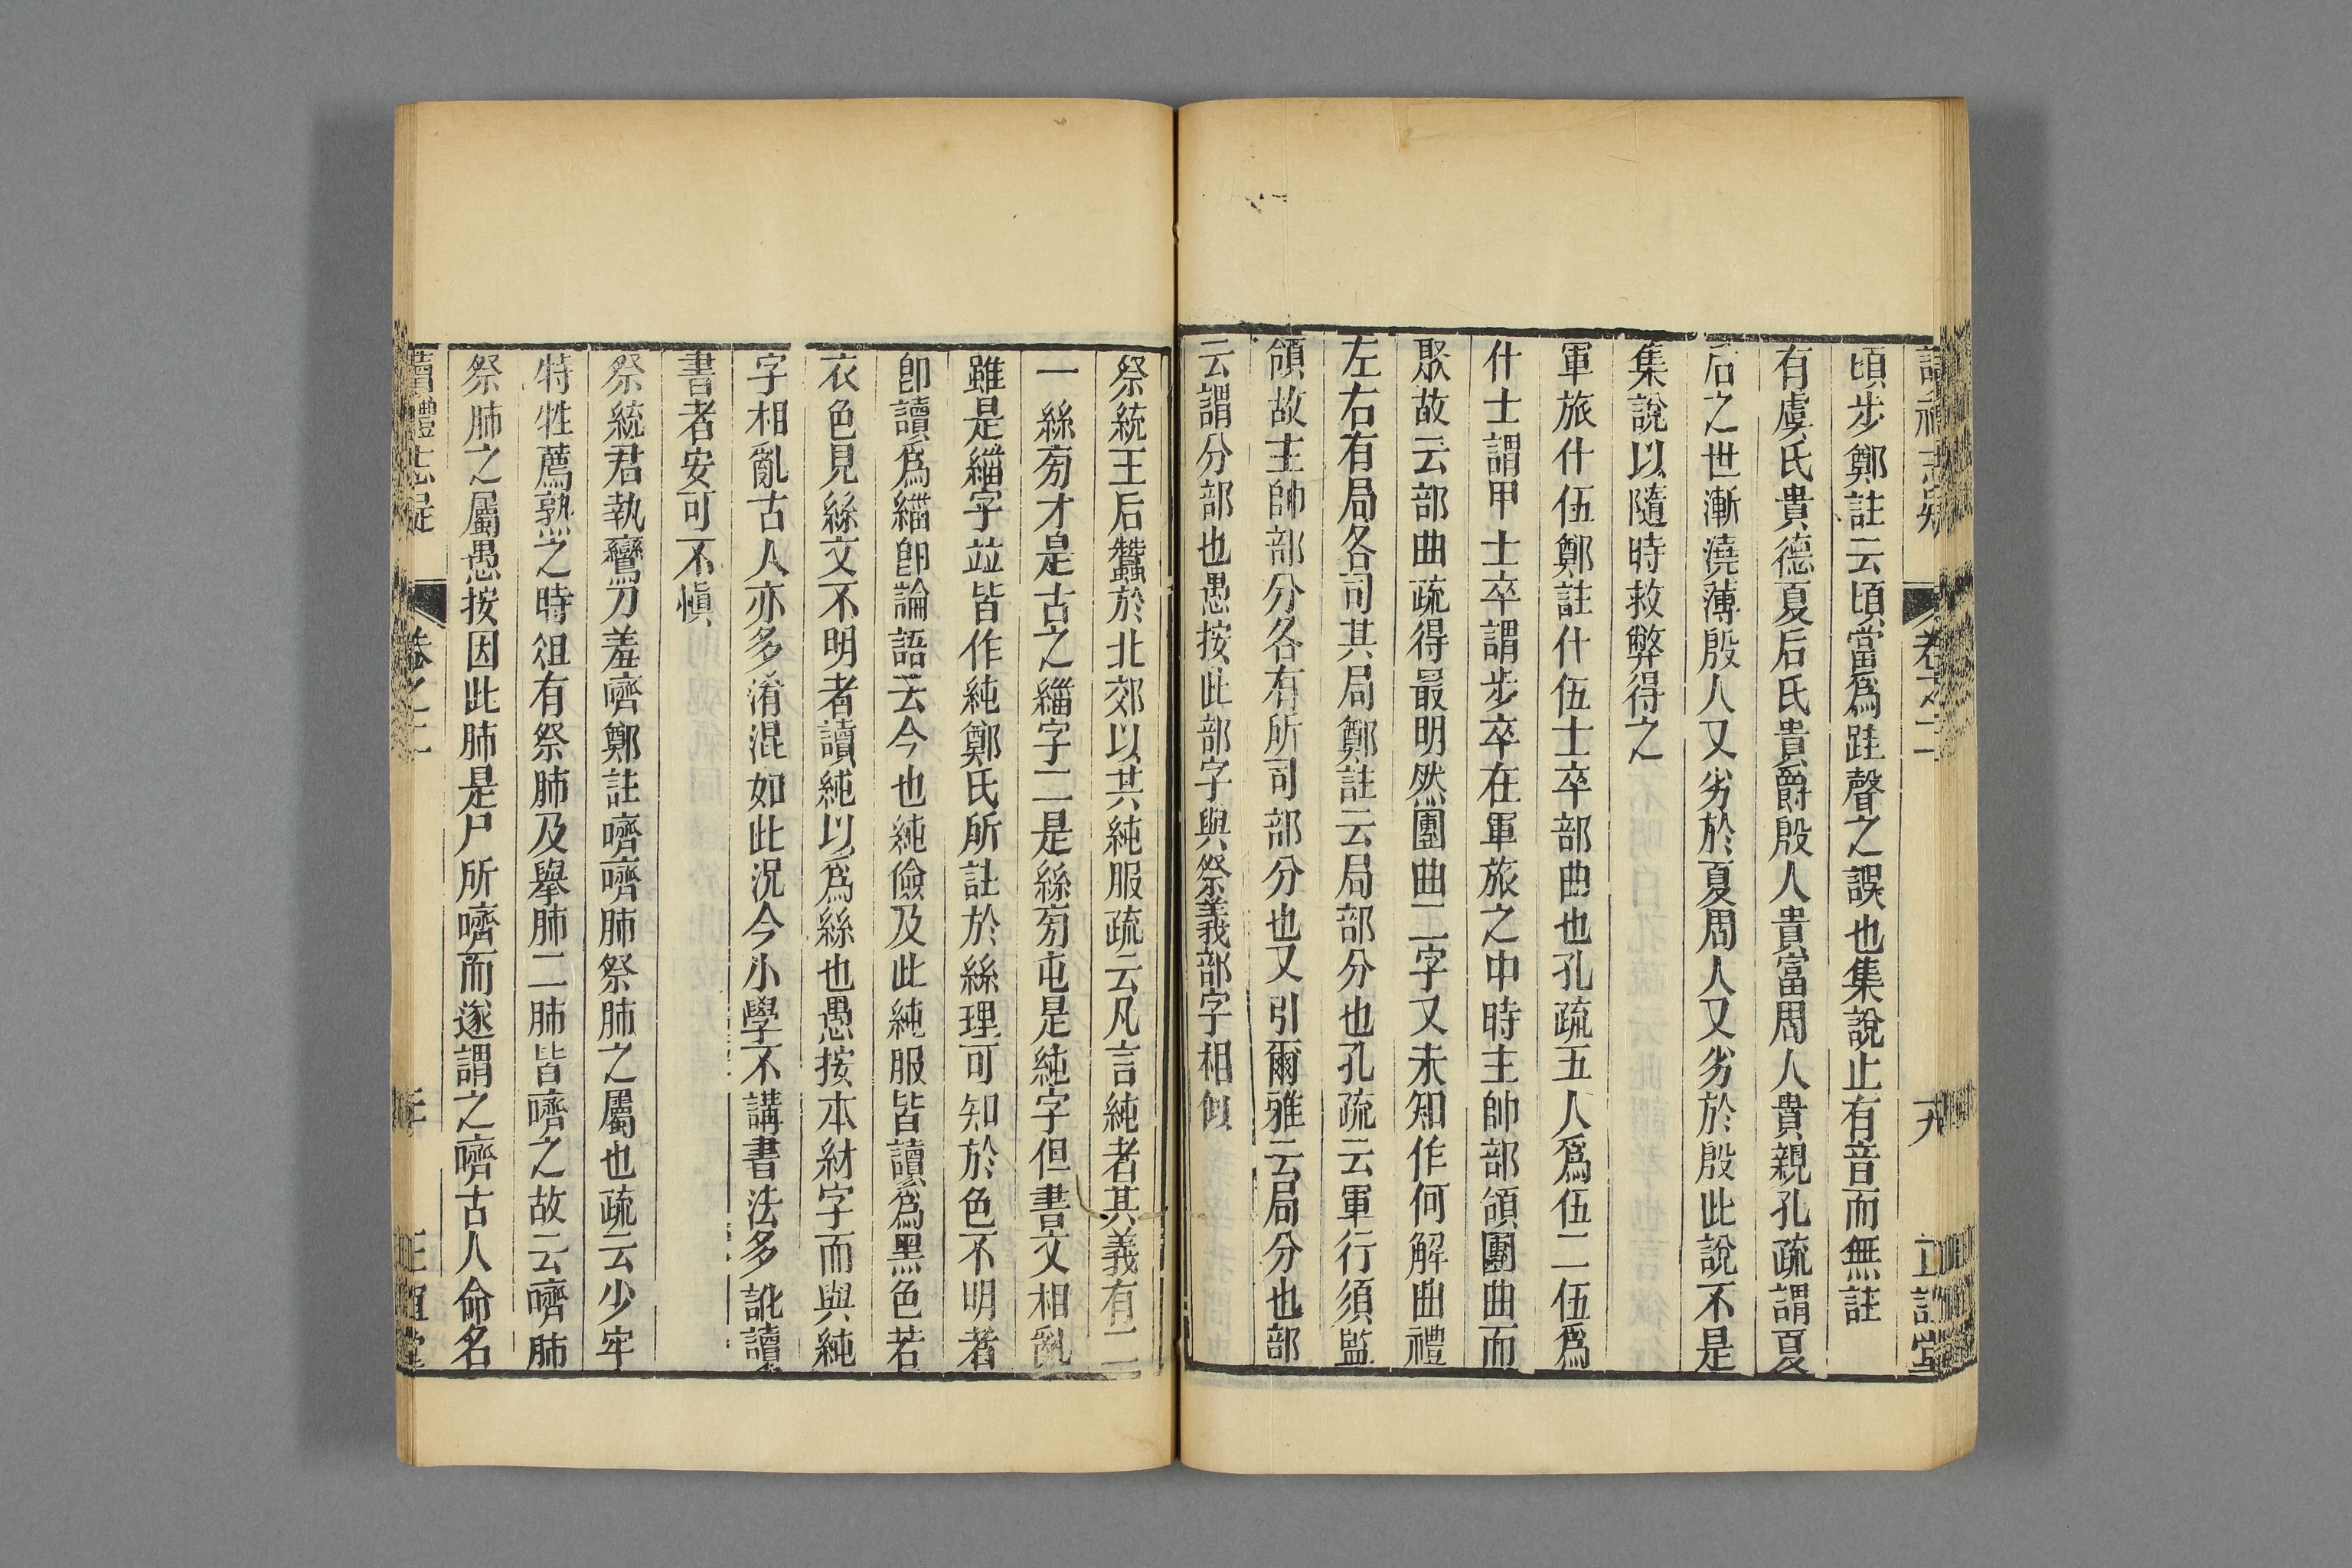 頃步鄭註云頃當爲跬聲之誤也集說止有音而無註
有虞氏貴德夏后氏貴爵殷人貴富周人貴親孔疏謂夏
后之世漸澆薄殷人又劣於夏周人又劣於殷此說不是
集說以隨時救弊得之
軍旅什伍鄭註什伍士卒部曲也孔疏五人爲伍二伍爲
什士謂甲士卒謂步卒在軍旅之中時主帥部領團曲而
聚故云部曲疏得最明然團曲二字又未知作何解曲禮
左右有局各司其局鄭註云局部分也孔疏云軍行須監
領故主帥部分各有所司部分也又引爾雅云局分也部
云謂分部也愚按此部字與祭義部字相似
祭統王后蠶於北郊以其純服疏云凡言純者其義有二
一絲旁才是古之緇字二是絲旁屯是純字但書文相亂
雖是緇字竝皆作純鄭氏所註於絲理可知於色不明者
卽讀爲緇卽論語云今也純儉及此純服皆讀爲黑色若
衣色見絲文不明者讀純以爲絲也愚按本紂字而與純
字相亂古人亦多淆混如此況今小學不講書法多訛讀
書者安可不愼
祭統君執鸞刀羞嚌鄭註嚌嚌肺祭肺之屬也疏云少牢
特牲薦孰之時俎有祭肺及舉肺二肺皆嚌之故云嚌肺
祭肺之屬愚按因此肺是尸所嚌而遂謂之嚌古人命名
讀禮志疑
卷之二